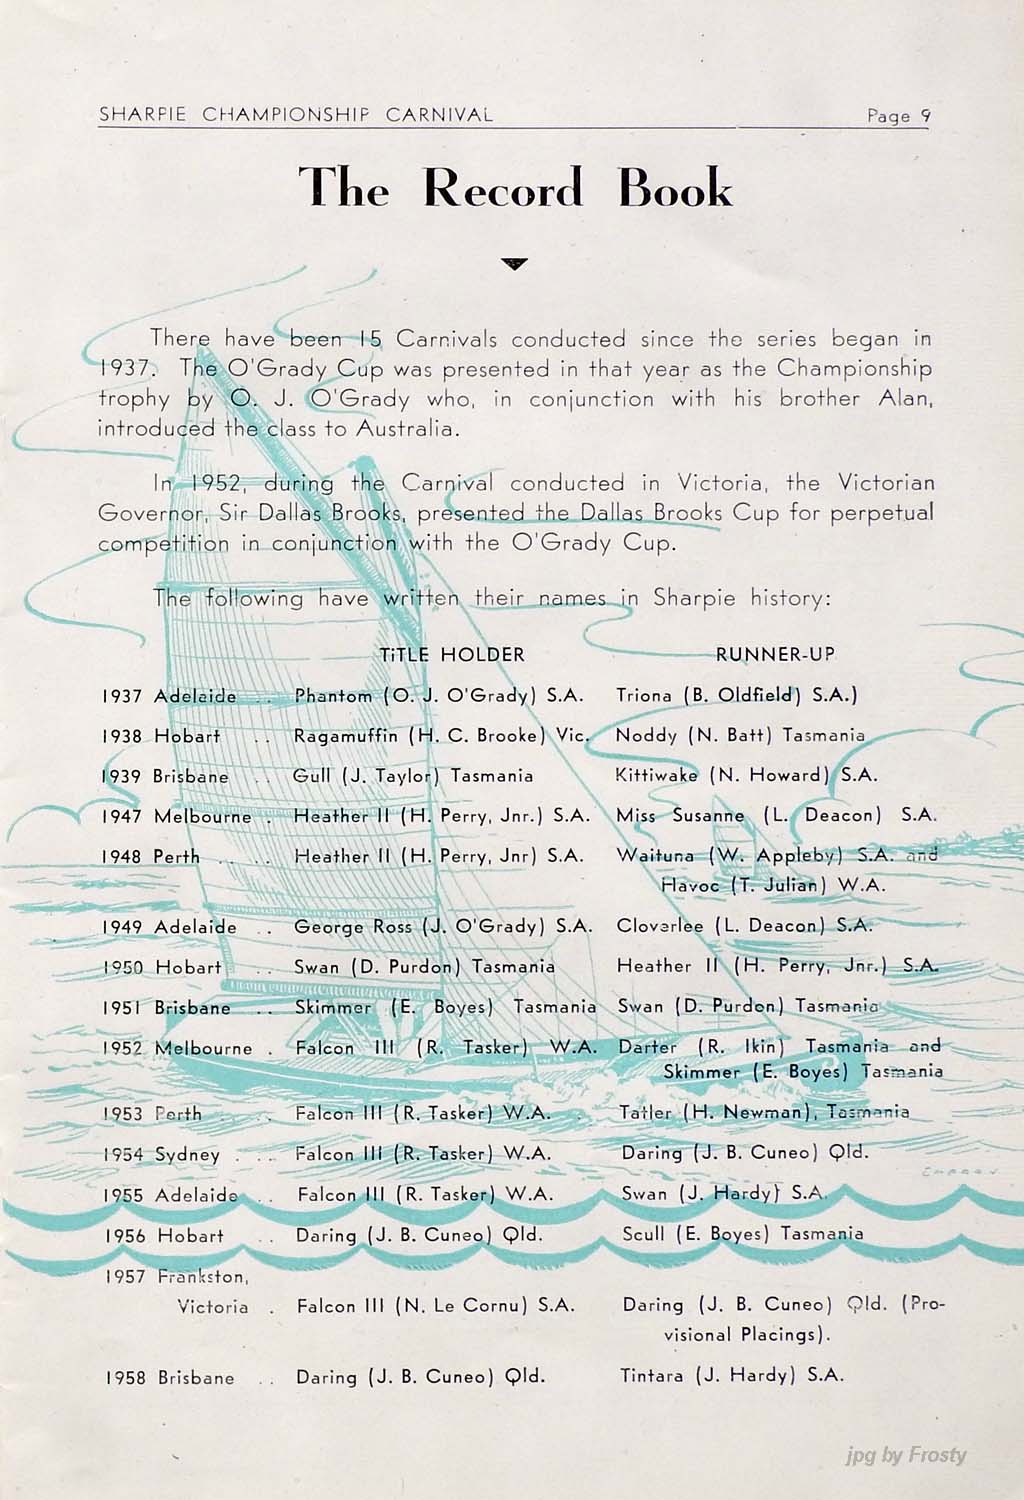 SHARPIE CHAMPIONSHIP CARNIVAL Page 9
The Record Book
There have been 15 Carnivals conducted since the series began in
1937. The O'Grady Cup was presented in that year as the Championship
trophy by O. J. O'Grady who, in conjunction with his brother Alan,
introduced the class to Australia.
In 1952, during the Carnival conducted in Victoria, the Victorian
Governor, Sir Dallas Brooks, presented the Dallas Brooks Cup for perpetual
competition in conjunction with the O'Grady Cup.
The following have written their names in Sharpie history:
TiTLE HOLDER RUNNER-UP
1937 Adelaide .. Phantom (O. J. O'Grady) S.A. Triona (B. Oldfield) S.A.)
1938 Hobart .. Ragamuffin (H. C. Brooke) Vic. Noddy (N. Batt) Tasmania
1939 Brisbane .. Gull (J. Taylor) Tasmania Kittiwake (N. Howard) S.A.
1947 Melbourne . Heather II (H. Perry, Jnr.) S.A. Miss Susanne (L. Deacon) S.A.
1948 Perth .. .. Heather II (H. Perry, Jnr) S.A. Waituna (W. Appleby) S.A. and
Havoc (T. Julian) W.A.
1949 Adelaide .. George Ross (J. O'Grady) S.A. Cloverlee (L. Deacon) S.A.
1950 Hobart .. Swan (D. Purdon) Tasmania Heather II (H. Perry, Jnr.) S.A.
1951 Brisbane .. Skimmer (E. Boyes) Tasmania Swan (D. Purdon) Tasmania
1952 Melbourne . Falcon III (R. Tasker) W.A. Darter (R. Ikin) Tasmania and
Skimmer (E. Boyes) Tasmania
1953 Perth .. .. Falcon III (R. Tasker) W.A. Tatler (H. Newman), Tasmania
1954 Sydney . .. Falcon III (R. Tasker) W.A. Daring (J. B. Cuneo) Qld.
1955 Adelaide .. Falcon III (R. Tasker) W.A. Swan (J. Hardy) S.A.
1956 Hobart .. Daring (J. B. Cuneo) Qld. Scull (E. Boyes) Tasmania
1957 Frankston,
Victoria . Falcon III (N. Le Cornu) S.A. Daring (J. B. Cuneo) Qld. (Pro-
visional Placings).
1958 Brisbane .. Daring (J. B. Cuneo) Qld. Tintara (J. Hardy) S.A.
jpg by Frosty